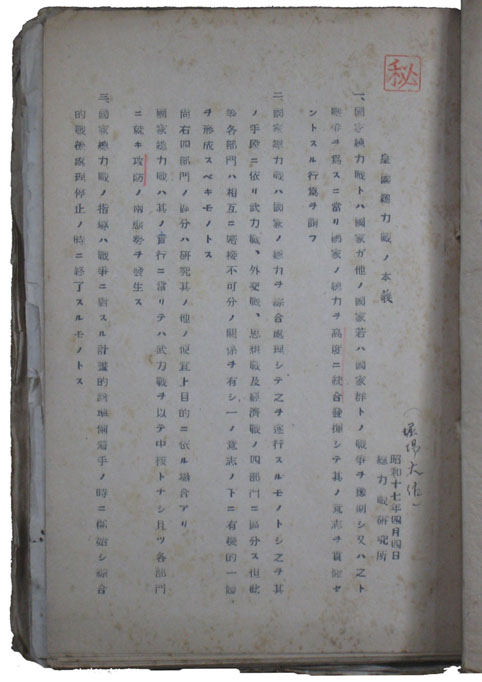 秘
皇國總力戰ノ本義
昭和十七年四月四日
總力戰研究所
一、國家總力戰トハ國家ガ他ノ國家若ハ國家群トノ戰爭ヲ豫期シ又ハ之ト
戰爭ヲ爲スニ當リ國家ノ總力ヲ高度ニ統合發揮シテ其ノ意志ヲ貫徹セ
ントスル行爲ヲ謂フ
二、國家總力戰ハ國家ノ總力ヲ綜合處理シテ之ヲ遂行スルモノトシ之ヲ其
ノ手段ニ依リ武力戰、外交戰、思想戰及經濟戰ノ四部門ニ區分ス但此
等各部門ハ相互ニ密接不可分ノ關係ヲ有シ一ノ意志ノ下ニ有機的一體
ヲ形成スベキモノトス
尚右四部門ノ區分ハ研究其ノ他ノ便宜上目的ニ依ル場合アリ
國家總力戰ハ其ノ實行ニ當リテハ武力戰ヲ以テ中核トナシ且ツ各部門
ニ就キ攻防ノ兩態勢ヲ發生ス
三、國家總力戰ノ指導ハ戰爭ニ對スル計畫的準備着手ノ時ニ開始シ綜合
的戰後處理停止ノ時ニ終了スルモノトス